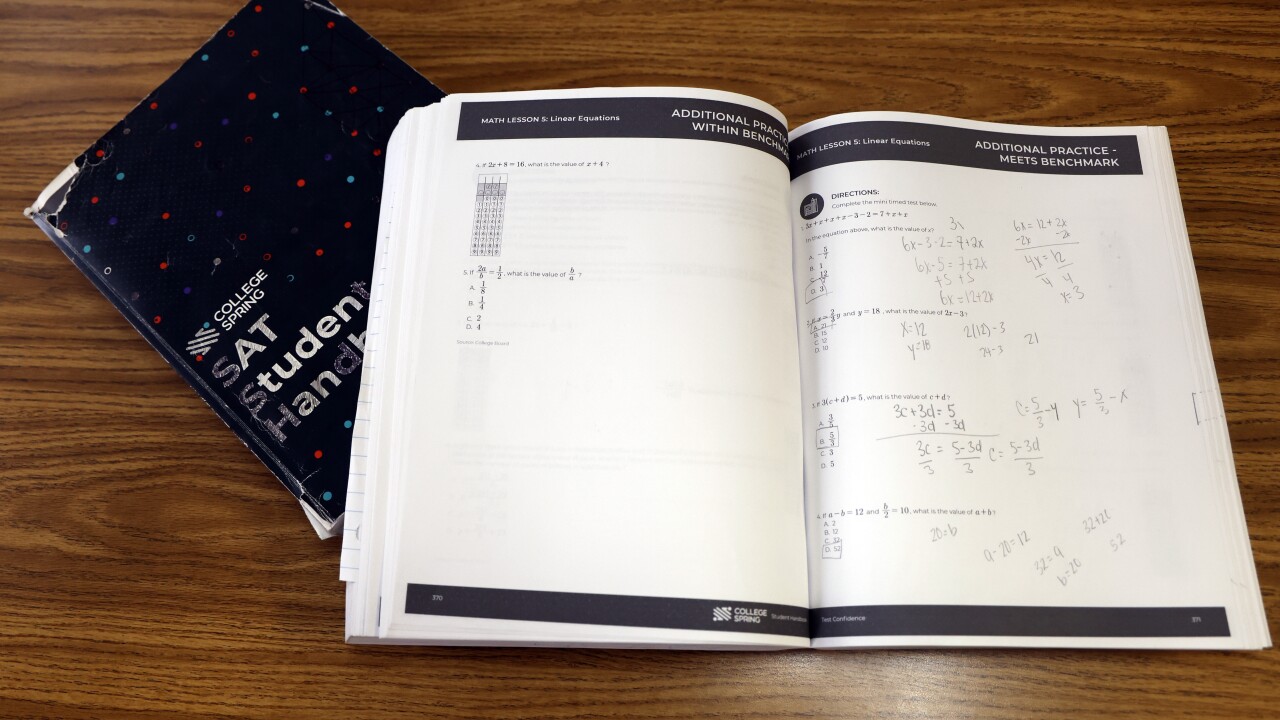 COLLEGE
SPRING
SAT
Student
MATH LESSON 5: Linear Equations
ADDITIONAL
WITHIN
4. If 2x + 8 = 16, what is the value of x + 4 ?
5. If 2a/b = 1/2, what is the value of b/a ?
A. 1/8
B. 1/4
C. 2
D. 4
Source: College Board
370
COLLEGE
SPRING
Student
MATH LESSON 5: Linear Equations
ADDITIONAL PRACTICE -
MEETS BENCHMARK
DIRECTIONS:
Complete the mini timed test below.
x + x + x - 3 - 2 = 7 + x + x
In the equation above, what is the value of x?
B. 1
D. 3
6x-3-2=7+2x
6x-5=7+2x
+5 +5
6x=12+2x
6x=12+2x
-2x -2x
4x=12
4 4
x=3
y and y = 18, what is the value of 2x - 3?
A. 21
B. 15
C. 12
D. 10
x=12
y=18
2(12)-3
24-3
21
3. If 3(c + d) = 5, what is the value of c + d?
A. 3/5
B. 5/3
C. 3
D. 5
3c+3d=5
-3d -3d
3c/3 = 5-3d/3
c = 5-3d/3
c=5/3-y
y=5/3-x
4. If a - b = 12 and b/2 = 10, what is the value of a + b?
A. 2
B. 12
C. 32
D. 52
20=b
a-20=12
32=a
b=20
52
Test Confidence
371